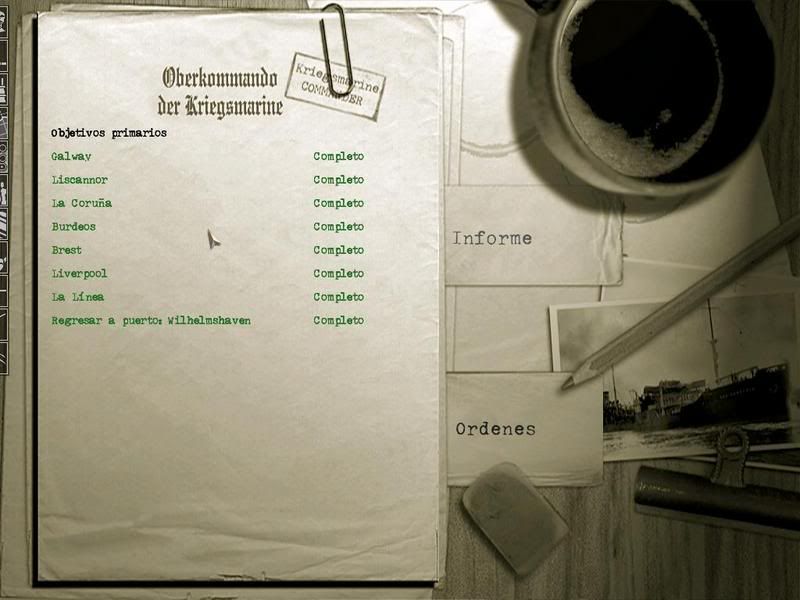 Oberkommando
der Kriegsmarine
Kriegsmarine
COMMANDER
Objetivos primarios
Galway Completo
Liscannor Completo
La Coruña Completo
Burdeos Completo
Brest Completo
Liverpool Completo
La Línea Completo
Regresar a puerto: Wilhelmshaven Completo
Informe
Ordenes